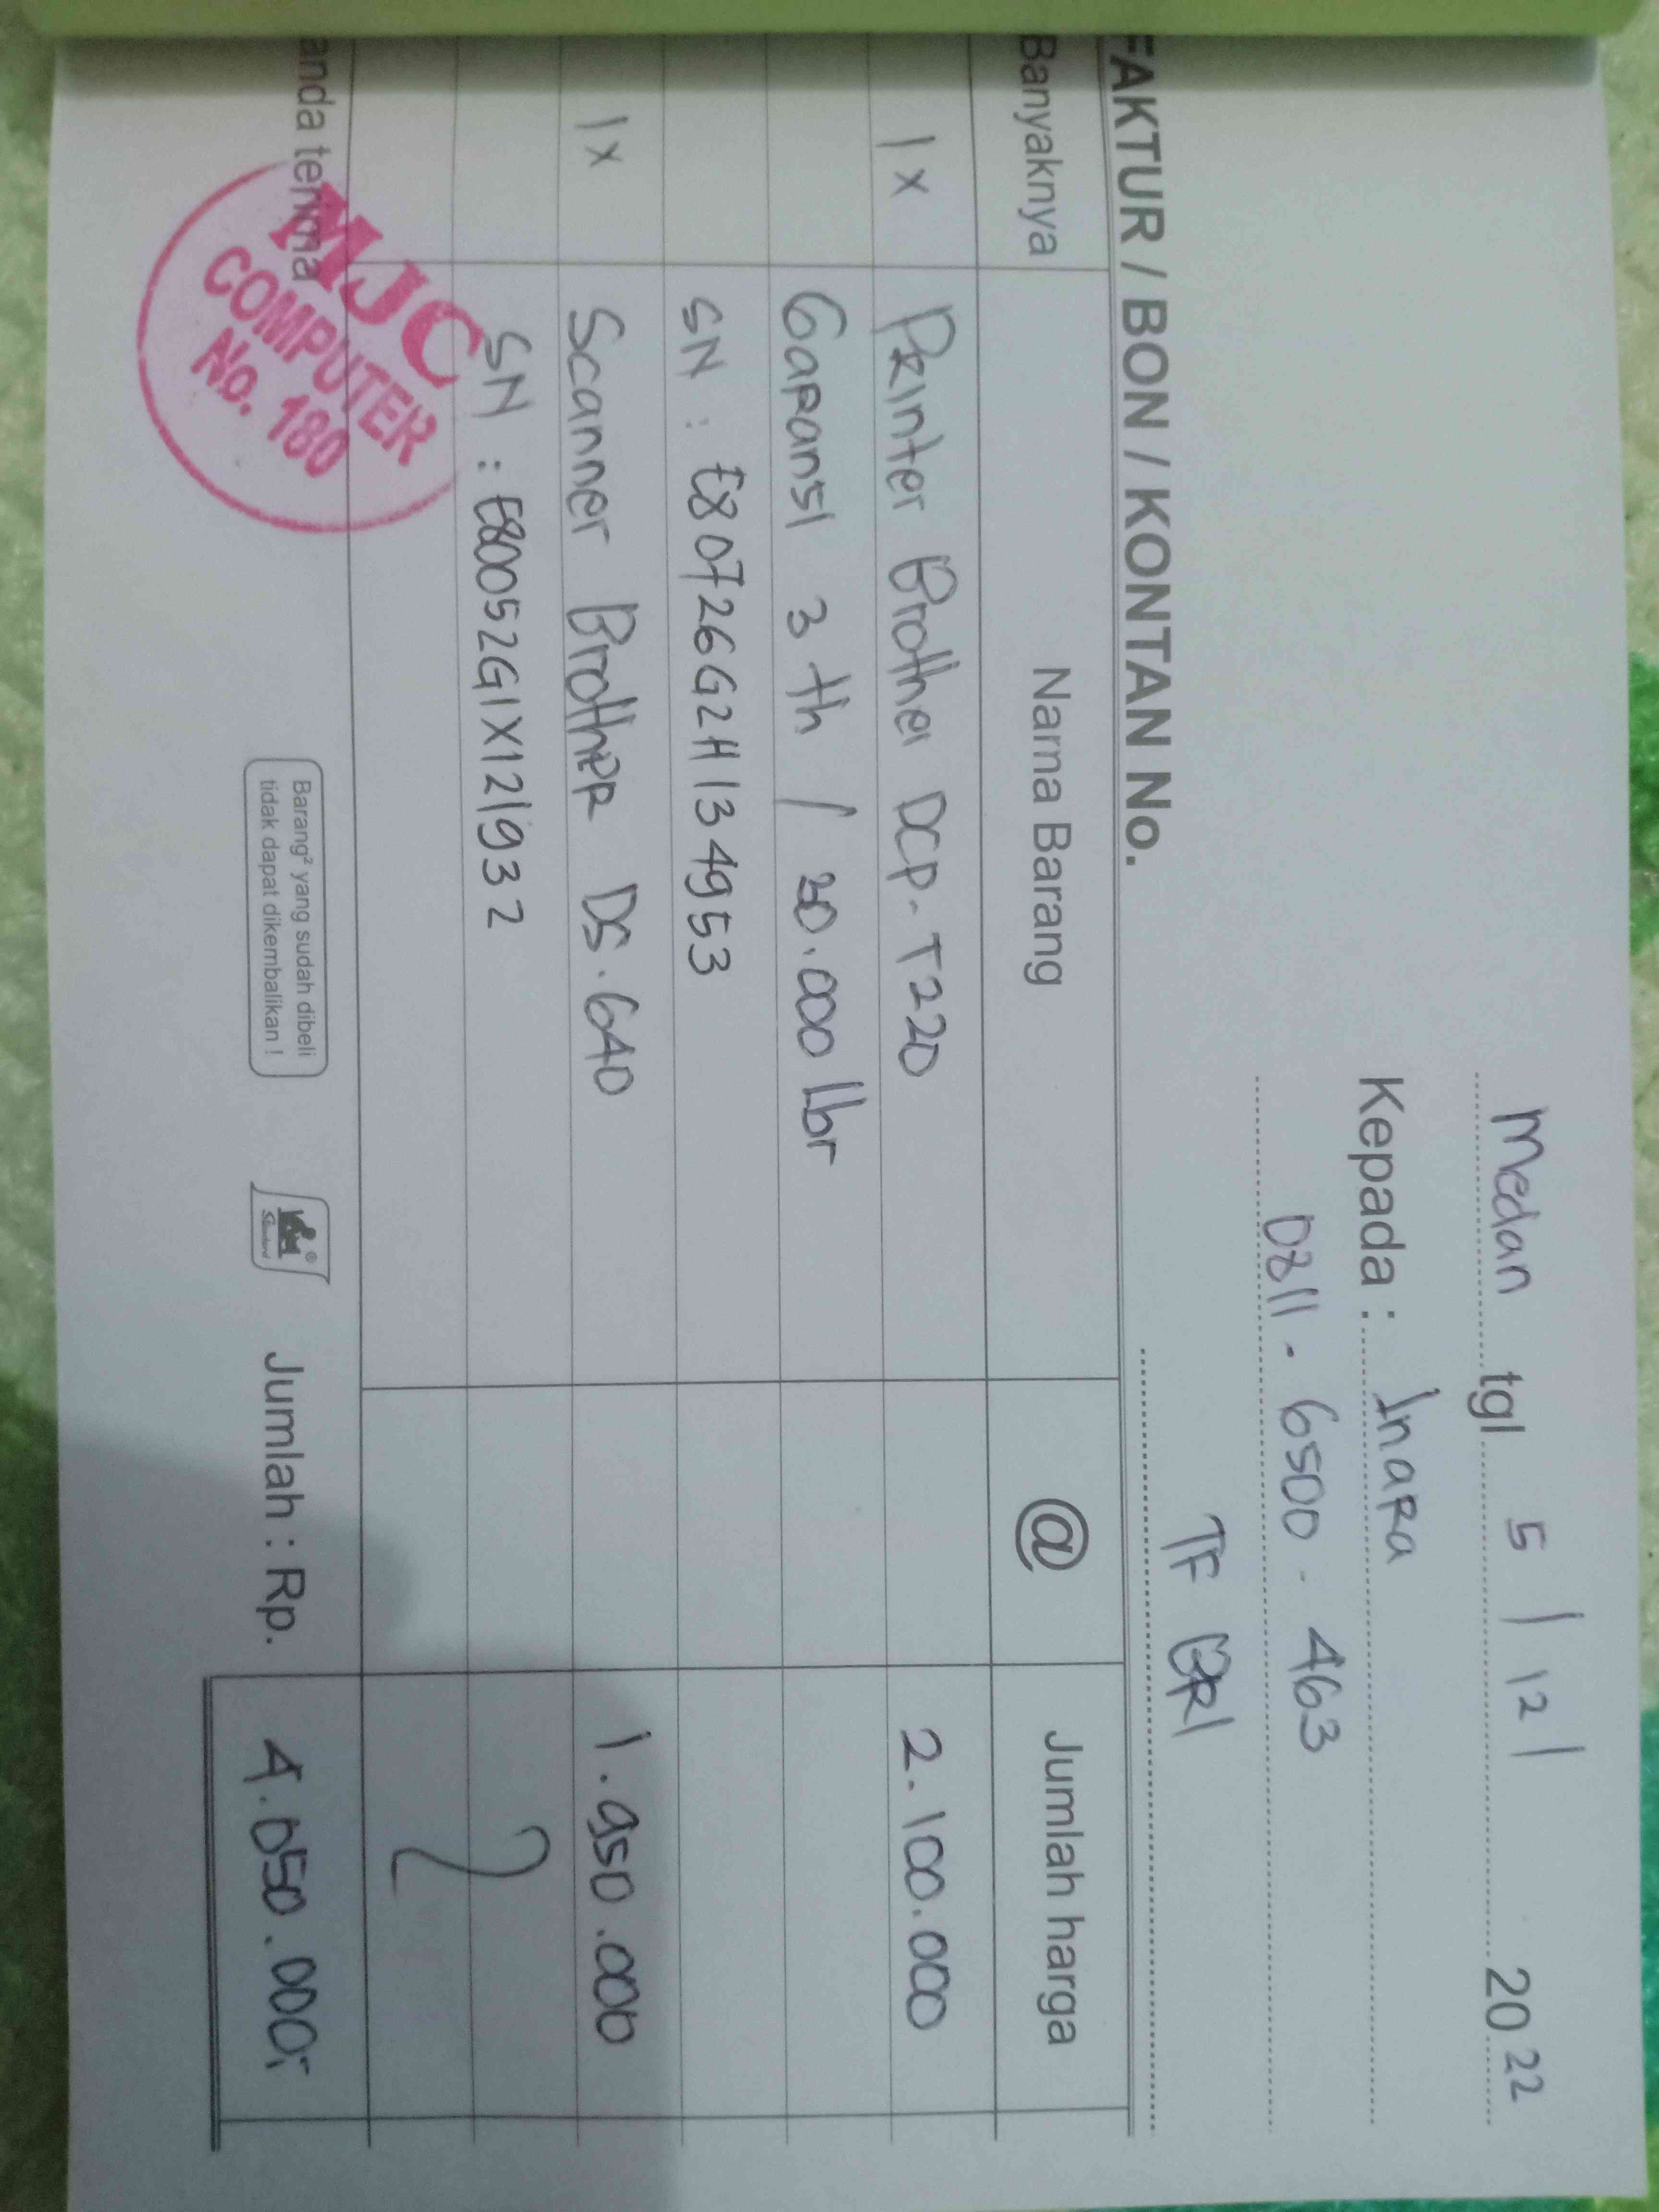 Medan tgl 5 / 12 / 2022
Kepada : Inara
0811 - 6500 - 463
TF BRI
FAKTUR / BON / KONTAN No.
Banyaknya Nama Barang @ Jumlah harga
1 x Printer Brother DCP-T220 2.100.000
Garansi 3 th / 30.000 lbr
SN : E80726G2H134953
1 x Scanner Brother DS.640 1.950.000
SN : E80052G1X121932
anda terima
MJC
COMPUTER
No. 180
Barang² yang sudah dibeli
tidak dapat dikembalikan !
Jumlah : Rp. 4.050.000,-